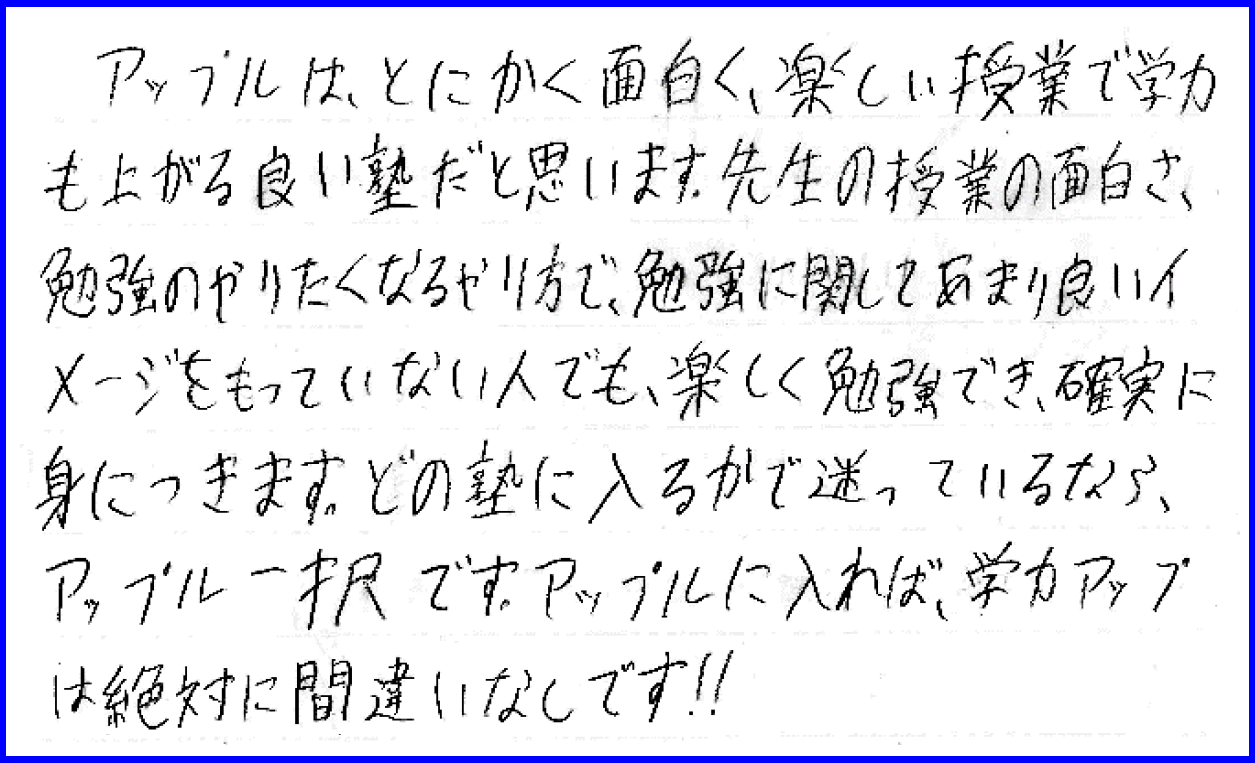 アップルは、とにかく面白く、楽しい授業で学力
も上がる良い塾だと思います。先生の授業の面白さ、
勉強のやりたくなるやり方で、勉強に関してあまり良いイ
メージをもっていない人でも、楽しく勉強でき、確実に
身につきます。どの塾に入るかで迷っているなら、
アップル一択です。アップルに入れば、学力アップ
は絶対に間違いなしです!!